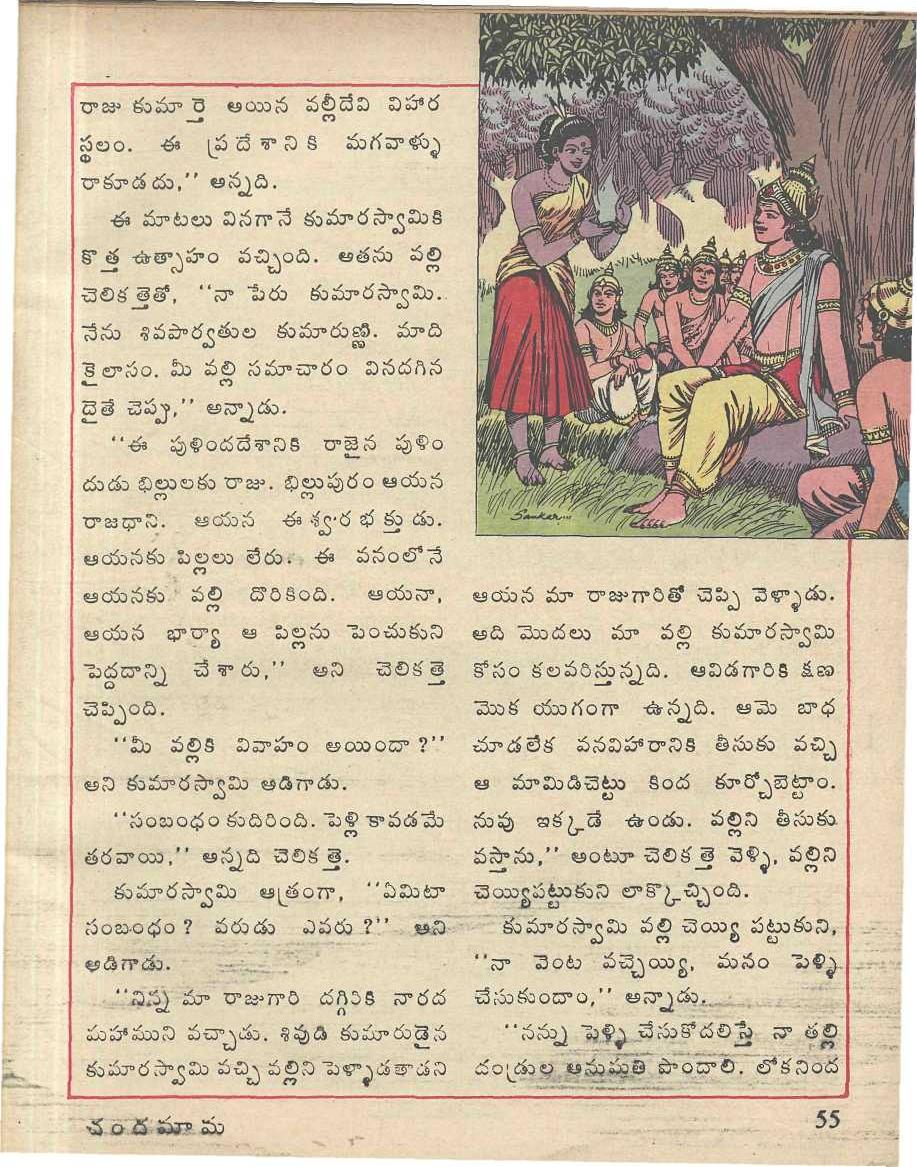 రాజు కుమార్తె అయిన వల్లీదేవి విహార
స్థలం. ఈ ప్రదేశానికి మగవాళ్ళు
రాకూడదు,'' అన్నది.
ఈ మాటలు వినగానే కుమారస్వామికి
కొత్త ఉత్సాహం వచ్చింది. అతను వల్లి
చెలికత్తెతో, ''నా పేరు కుమారస్వామి.
నేను శివపార్వతుల కుమారుణ్ణి. మాది
కైలాసం. మీ వల్లి సమాచారం వినదగిన
దైతే చెప్పు,'' అన్నాడు.
''ఈ పుళిందదేశానికి రాజైన పుళిం
దుడు భిల్లులకు రాజు. భిల్లుపురం ఆయన
రాజధాని. ఆయన ఈశ్వర భక్తుడు.
ఆయనకు పిల్లలు లేరు. ఈ వనంలోనే
ఆయనకు వల్లి దొరికింది. ఆయనా,
ఆయన భార్యా ఆ పిల్లను పెంచుకుని
పెద్దదాన్ని చేశారు,'' అని చెలికత్తె
చెప్పింది.
''మీ వల్లికి వివాహం అయిందా ?''
అని కుమారస్వామి అడిగాడు.
''సంబంధం కుదిరింది. పెళ్లి కావడమే
తరవాయి,'' అన్నది చెలికత్తె.
కుమారస్వామి ఆత్రంగా, ''ఏమిటా
సంబంధం ? వరుడు ఎవరు ?'' అని
అడిగాడు.
''నిన్న మా రాజుగారి దగ్గిరికి నారద
మహాముని వచ్చాడు. శివుడి కుమారుడైన
కుమారస్వామి వచ్చి వల్లిని పెళ్ళాడతాడని
Sankar...
ఆయన మా రాజుగారితో చెప్పి వెళ్ళాడు.
అది మొదలు మా వల్లి కుమారస్వామి
కోసం కలవరిస్తున్నది. ఆవిడగారికి క్షణ
మొక యుగంగా ఉన్నది. ఆమె బాధ
చూడలేక వనవిహారానికి తీసుకు వచ్చి
ఆ మామిడిచెట్టు కింద కూర్చోబెట్టాం.
నువు ఇక్కడే ఉండు. వల్లిని తీసుకు
వస్తాను,'' అంటూ చెలికత్తె వెళ్ళి, వల్లిని
చెయ్యిపట్టుకుని లాక్కొచ్చింది.
కుమారస్వామి వల్లి చెయ్యి పట్టుకుని,
''నా వెంట వచ్చెయ్యి, మనం పెళ్ళి
చేసుకుందాం,'' అన్నాడు.
''నన్ను పెళ్ళి చేసుకోదలిస్తే నా తల్లి
దండ్రుల అనుమతి పొందాలి. లోకనింద
చందమామ
55